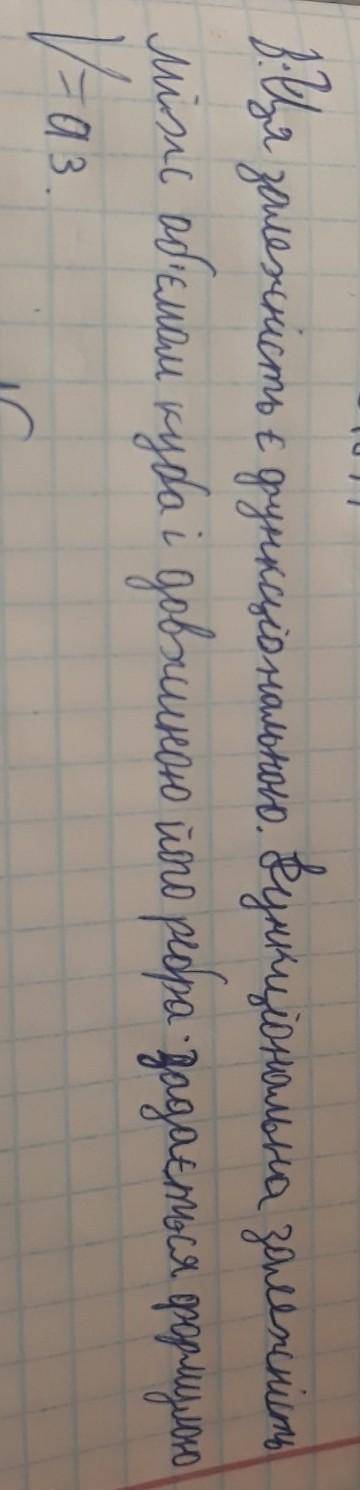 3. Ця залежність є функціональною. Функціональна залежність
між об'ємом куба і довжиною його ребра задається формулою
V = a3.